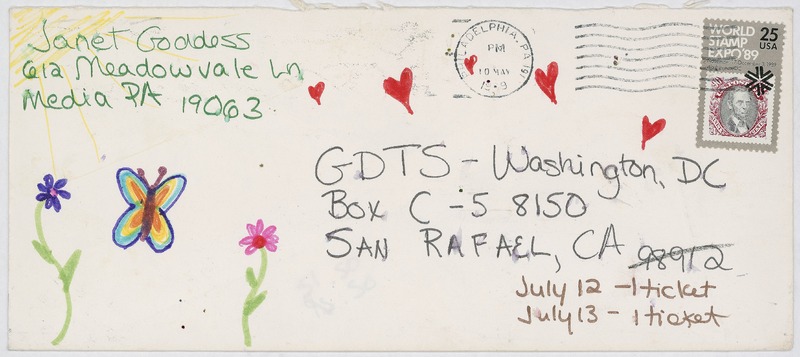 Janet Goddess
612 Meadowvale Ln
Media PA 19063
PHILADELPHIA, PA 191
PM
10 MAY
WORLD
STAMP
EXPO '89
25
USA
GDTS - Washington, DC
Box C-5 8150
SAN RAFAEL, CA 98912
July 12 - 1 ticket
July 13 - 1 ticket